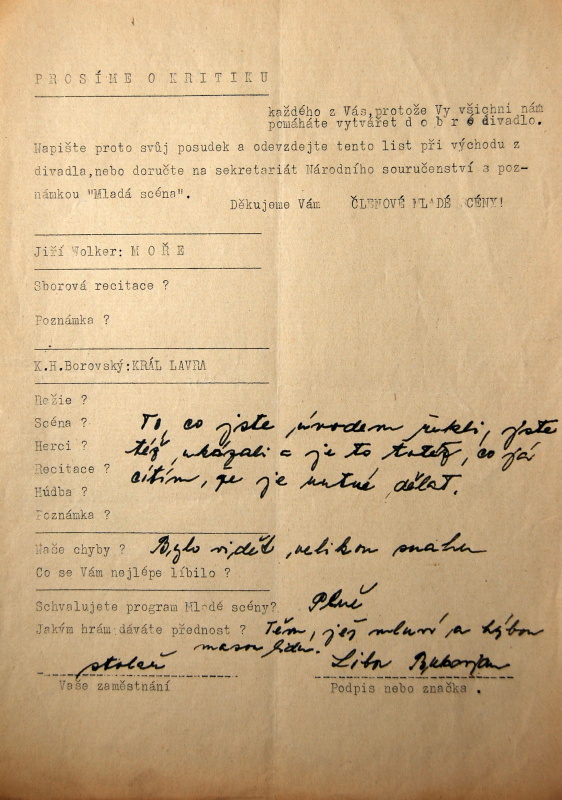 PROSÍME O KRITIKU
každého z Vás,protože Vy všichni nám
pomáháte vytvářet d o b r é divadlo.
Napište proto svůj posudek a odevzdejte tento list při východu z
divadla,nebo doručte na sekretariát Národního souručenství s poz-
námkou "Mladá scéna".
Děkujeme Vám ČLENOVÉ MLADÉ SCÉNY!
Jiří Wolker: M O Ř E
Sborová recitace ?
Poznámka ?
K.H.Borovský:KRÁL LAVRA
Režie ?
Scéna ? To, co jste úvodem řekli, jste
Herci ? též ukázali a je to totéž, co já
Recitace ? cítím, že je nutné dělat.
Húdba ?
Poznámka ?
Naše chyby ? Bylo vidět velikou snahu
Co se Vám nejlépe líbilo ?
Schvalujete program Mladé scény? Plně
Jakým hrám dáváte přednost ? Těm, jež mluví a hýbou
masou lidu.
stolař Libor
Vaše zaměstnání Podpis nebo značka .